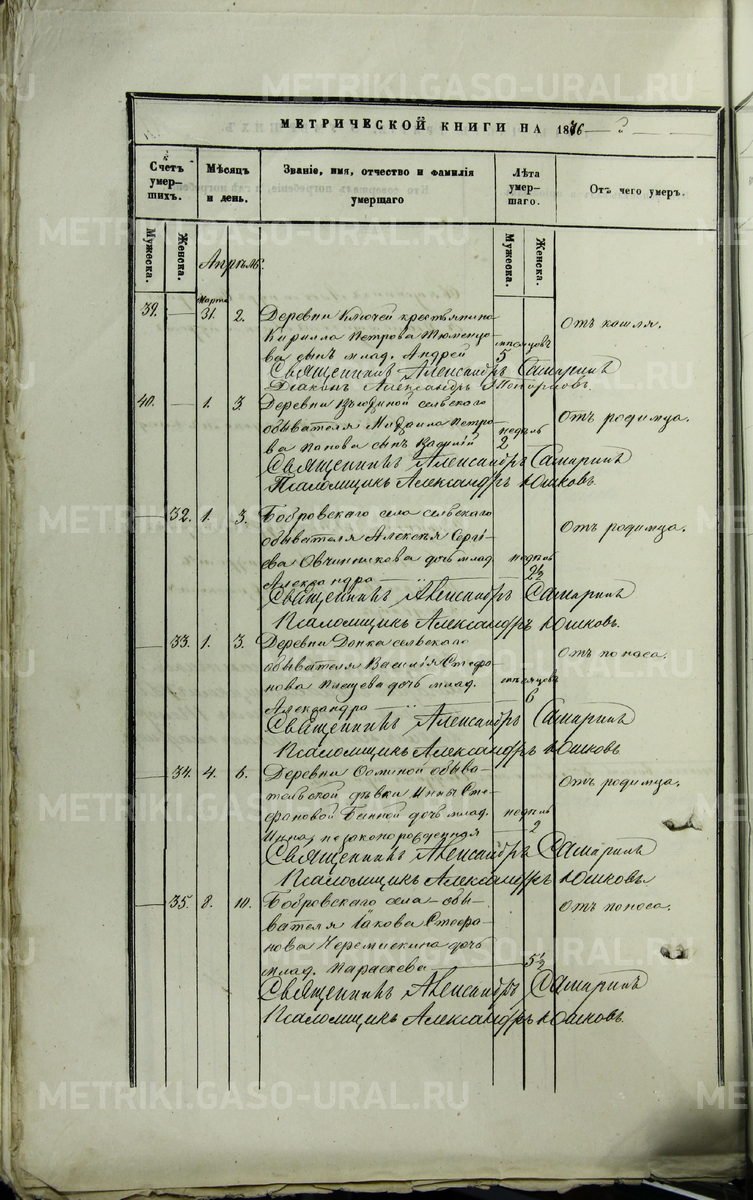 METRIKI.GASO-URAL.RU
МЕТРИЧЕСКОЙ КНИГИ НА 1876
Счетъ умер-шихъ.
Мѣсяцъ и день.
Званіе, имя, отчество и фамилія умершаго
Лѣта умер-шаго.
Отъ чего умеръ.
Мужеска.
Женска.
Мужеска.
Женска.
Апрѣль.
Марта
39. — 31. 2. Деревни Ключей крестьянина
Кирилла Петрова Тюменцо-
ва сынъ млад. Андрей
мѣсяцовъ 5
Отъ кашля.
Священникъ Александръ Самаринъ
Діаконъ Александръ Топорковъ.
40. — 1. 3. Деревни сельскаго
обывателя Михаила Петро-
ва Панова сынъ Василій
недѣль 2
Отъ родимца.
Священникъ Александръ Самаринъ
Псаломщикъ Александръ Юшковъ.
— 32. 1. 3. Бобровскаго села сельскаго
обывателя Алексѣя Сергі-
ева Овчинникова дочь млад.
Александра
недѣль 2½
Отъ родимца.
Священникъ Александръ Самаринъ
Псаломщикъ Александръ Юшковъ.
— 33. 1. 3. Деревни сельскаго
обывателя Василія Стефа-
нова дочь млад.
Александра
мѣсяцовъ 6
Отъ поноса.
Священникъ Александръ Самаринъ
Псаломщикъ Александръ Юшковъ
— 34. 4. 6. Деревни обыва-
тельской дѣвки Инны Сте-
фановой дочь млад.
Инна, незаконорожденная
недѣль 2
Отъ родимца.
Священникъ Александръ Самаринъ
Псаломщикъ Александръ Юшковъ
— 35. 8. 10. Бобровскаго села обы-
вателя Іакова Стефа-
нова Черемискина дочь
млад. Параскева
5½
Отъ поноса.
Священникъ Александръ Самаринъ
Псаломщикъ Александръ Юшковъ.
METRIKI.GASO-URAL.RU